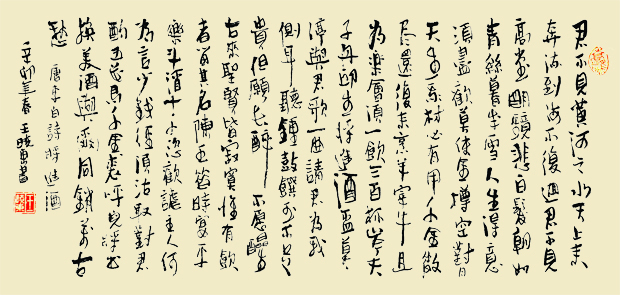 君不見黃河之水天上来
奔流到海不復迴君不見
高堂明鏡悲白髮朝如
青絲暮成雪人生得意
須盡歡莫使金樽空對月
天生我材必有用千金散
尽還復来烹羊宰牛且
為樂會須一飲三百杯岑夫
子丹丘生将進酒盃莫
停與君歌一曲請君為我
側耳聽鐘鼓饌玉不足
貴但願長醉不愿醒
古来聖賢皆寂寞惟有飲
者留其名陳王昔時宴平
樂斗酒十千恣歡謔主人何
為言少錢徑須沽取對君
酌五花馬千金裘呼兒将出
換美酒與爾同銷萬古
愁 唐李白詩将進酒
辛卯年春王曉書